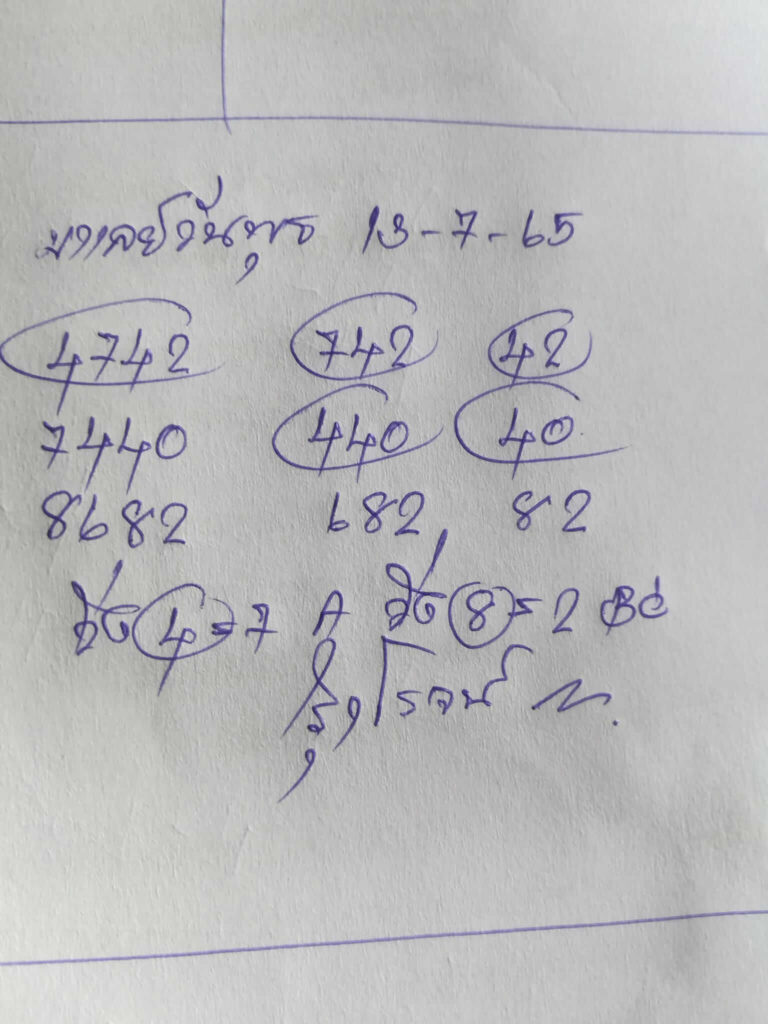 มาเลย์วันพุธ 13-7-65
4742 742 42
7440 440 40
8682 682 82
วิ่ง 4=7 A วิ่ง 8=2
รุ่งโรจน์